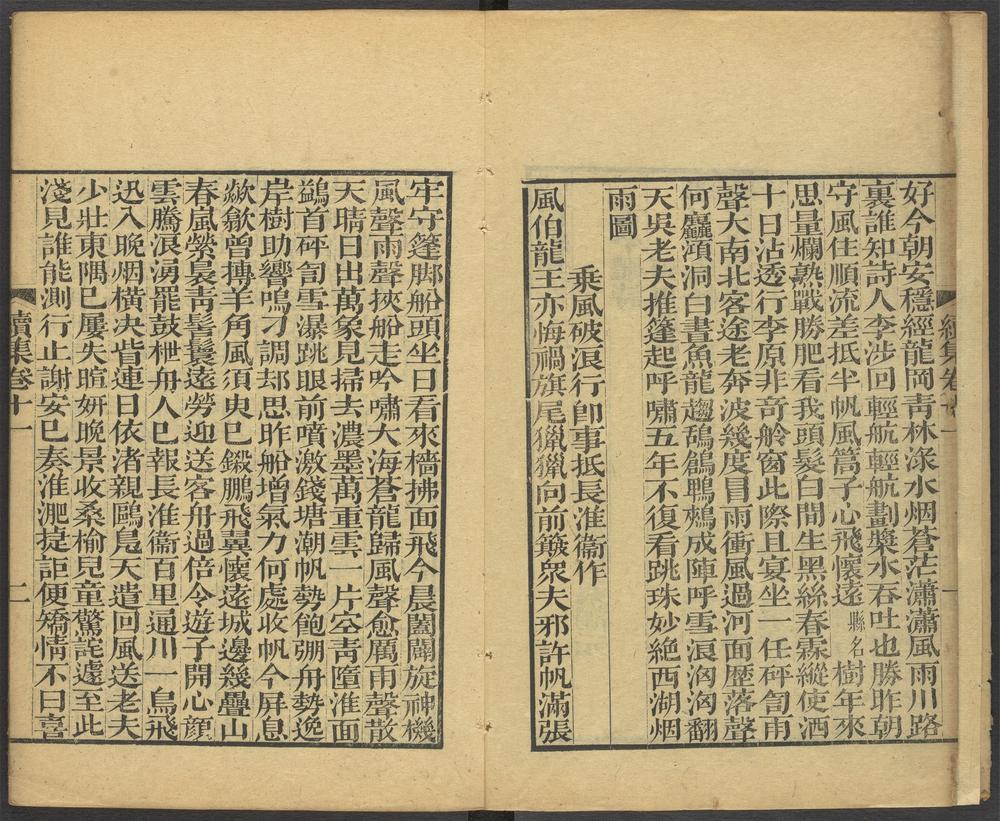 好今朝安穩經龍岡青林淥水烟蒼茫瀟瀟風雨川路
裏誰知詩人李涉回輕航輕航劃槳水吞吐也勝昨朝
守風住順流差抵半帆風篙子心飛懷遠縣名樹年來
思量爛熟戰勝肥看我頭髮白間生黑絲春霖縱使洒
十日沾透行李原非奇舲窗此際且宴坐一任砰訇雨
聲大南北客途老奔波幾度冒雨衝風過河面歷落聲
何麤澒洞白晝魚龍趨鵠鶬鴨鵁成陣呼雪浪洶洶翻
天吳老夫推篷起呼嘯五年不復看跳珠妙絶西湖烟
雨圖
乘風破浪行卽事抵長淮衞作
風伯龍王亦悔禍旗尾獵獵向前簸衆夫邪許帆滿張
續集卷十一
一
牢守篷脚船頭坐日看來檣拂面飛今晨闔闢旋神機
風聲雨聲挾船走吟嘯大海蒼龍歸風聲愈厲雨聲散
天晴日出萬象見掃去濃墨萬重雲一片空青墮淮面
鷁首砰訇雪瀑跳眼前噴激錢塘潮帆勢飽弸舟勢逸
岸樹助響嗚刁調却思昨船增氣力何處收帆今屏息
歘歙曾摶羊角風須臾已鎩鵬飛翼懷遠城邊幾疊山
春風縈裊青髻鬟遠勞迎送客舟過倍令遊子開心顏
雲騰浪湧罷鼓枻舟人已報長淮衞百里通川一鳥飛
迅入晚烟橫決眥連日依渚親鷗鳧天遣回風送老夫
少壯東隅已屢失暄妍晚景收桑榆兒童驚詫遽至此
淺見誰能測行止謝安已奏淮淝捷詎便矯情不曰喜
續集卷十一
二